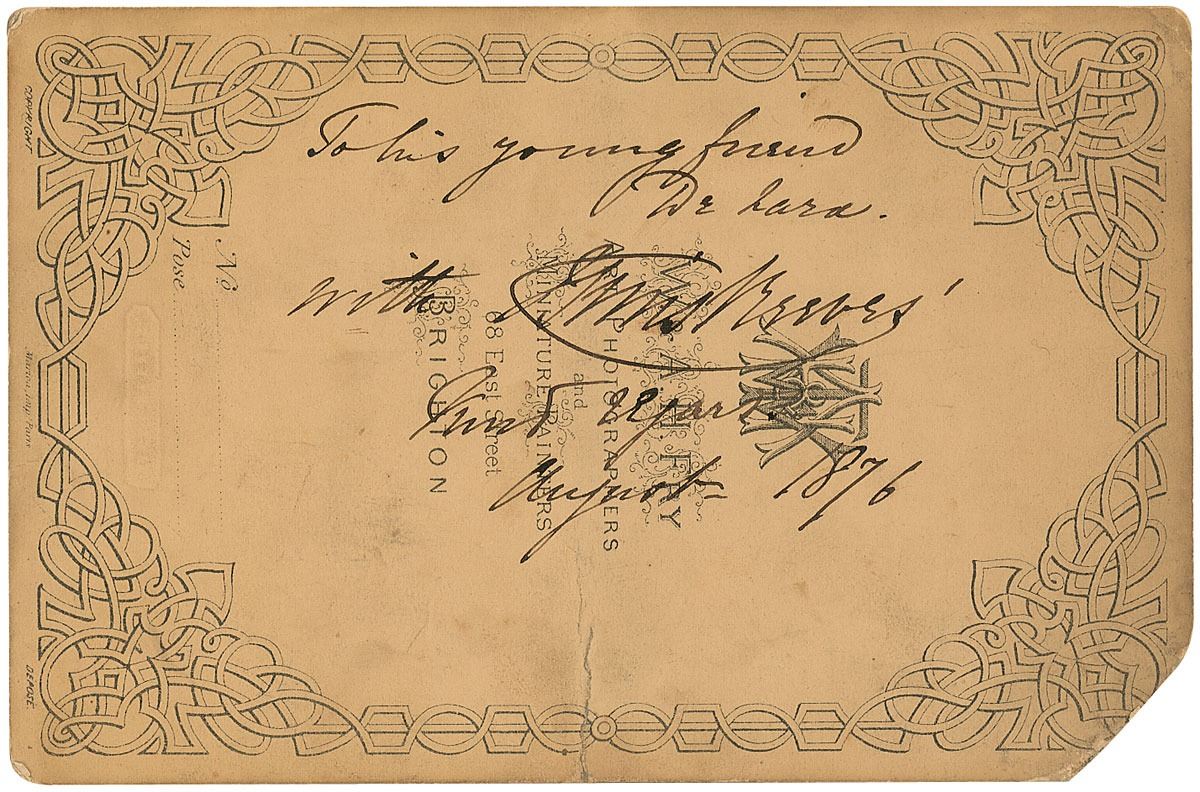 To his young friend
De Lara.
with Sims Reeves'
August 1876
COPYRIGHT
DEPOSE
No
Pose
Marion Imp. Paris
W. & A. H. FRY
ART PHOTOGRAPHERS
and
MINIATURE PAINTERS
68 East Street
BRIGHTON